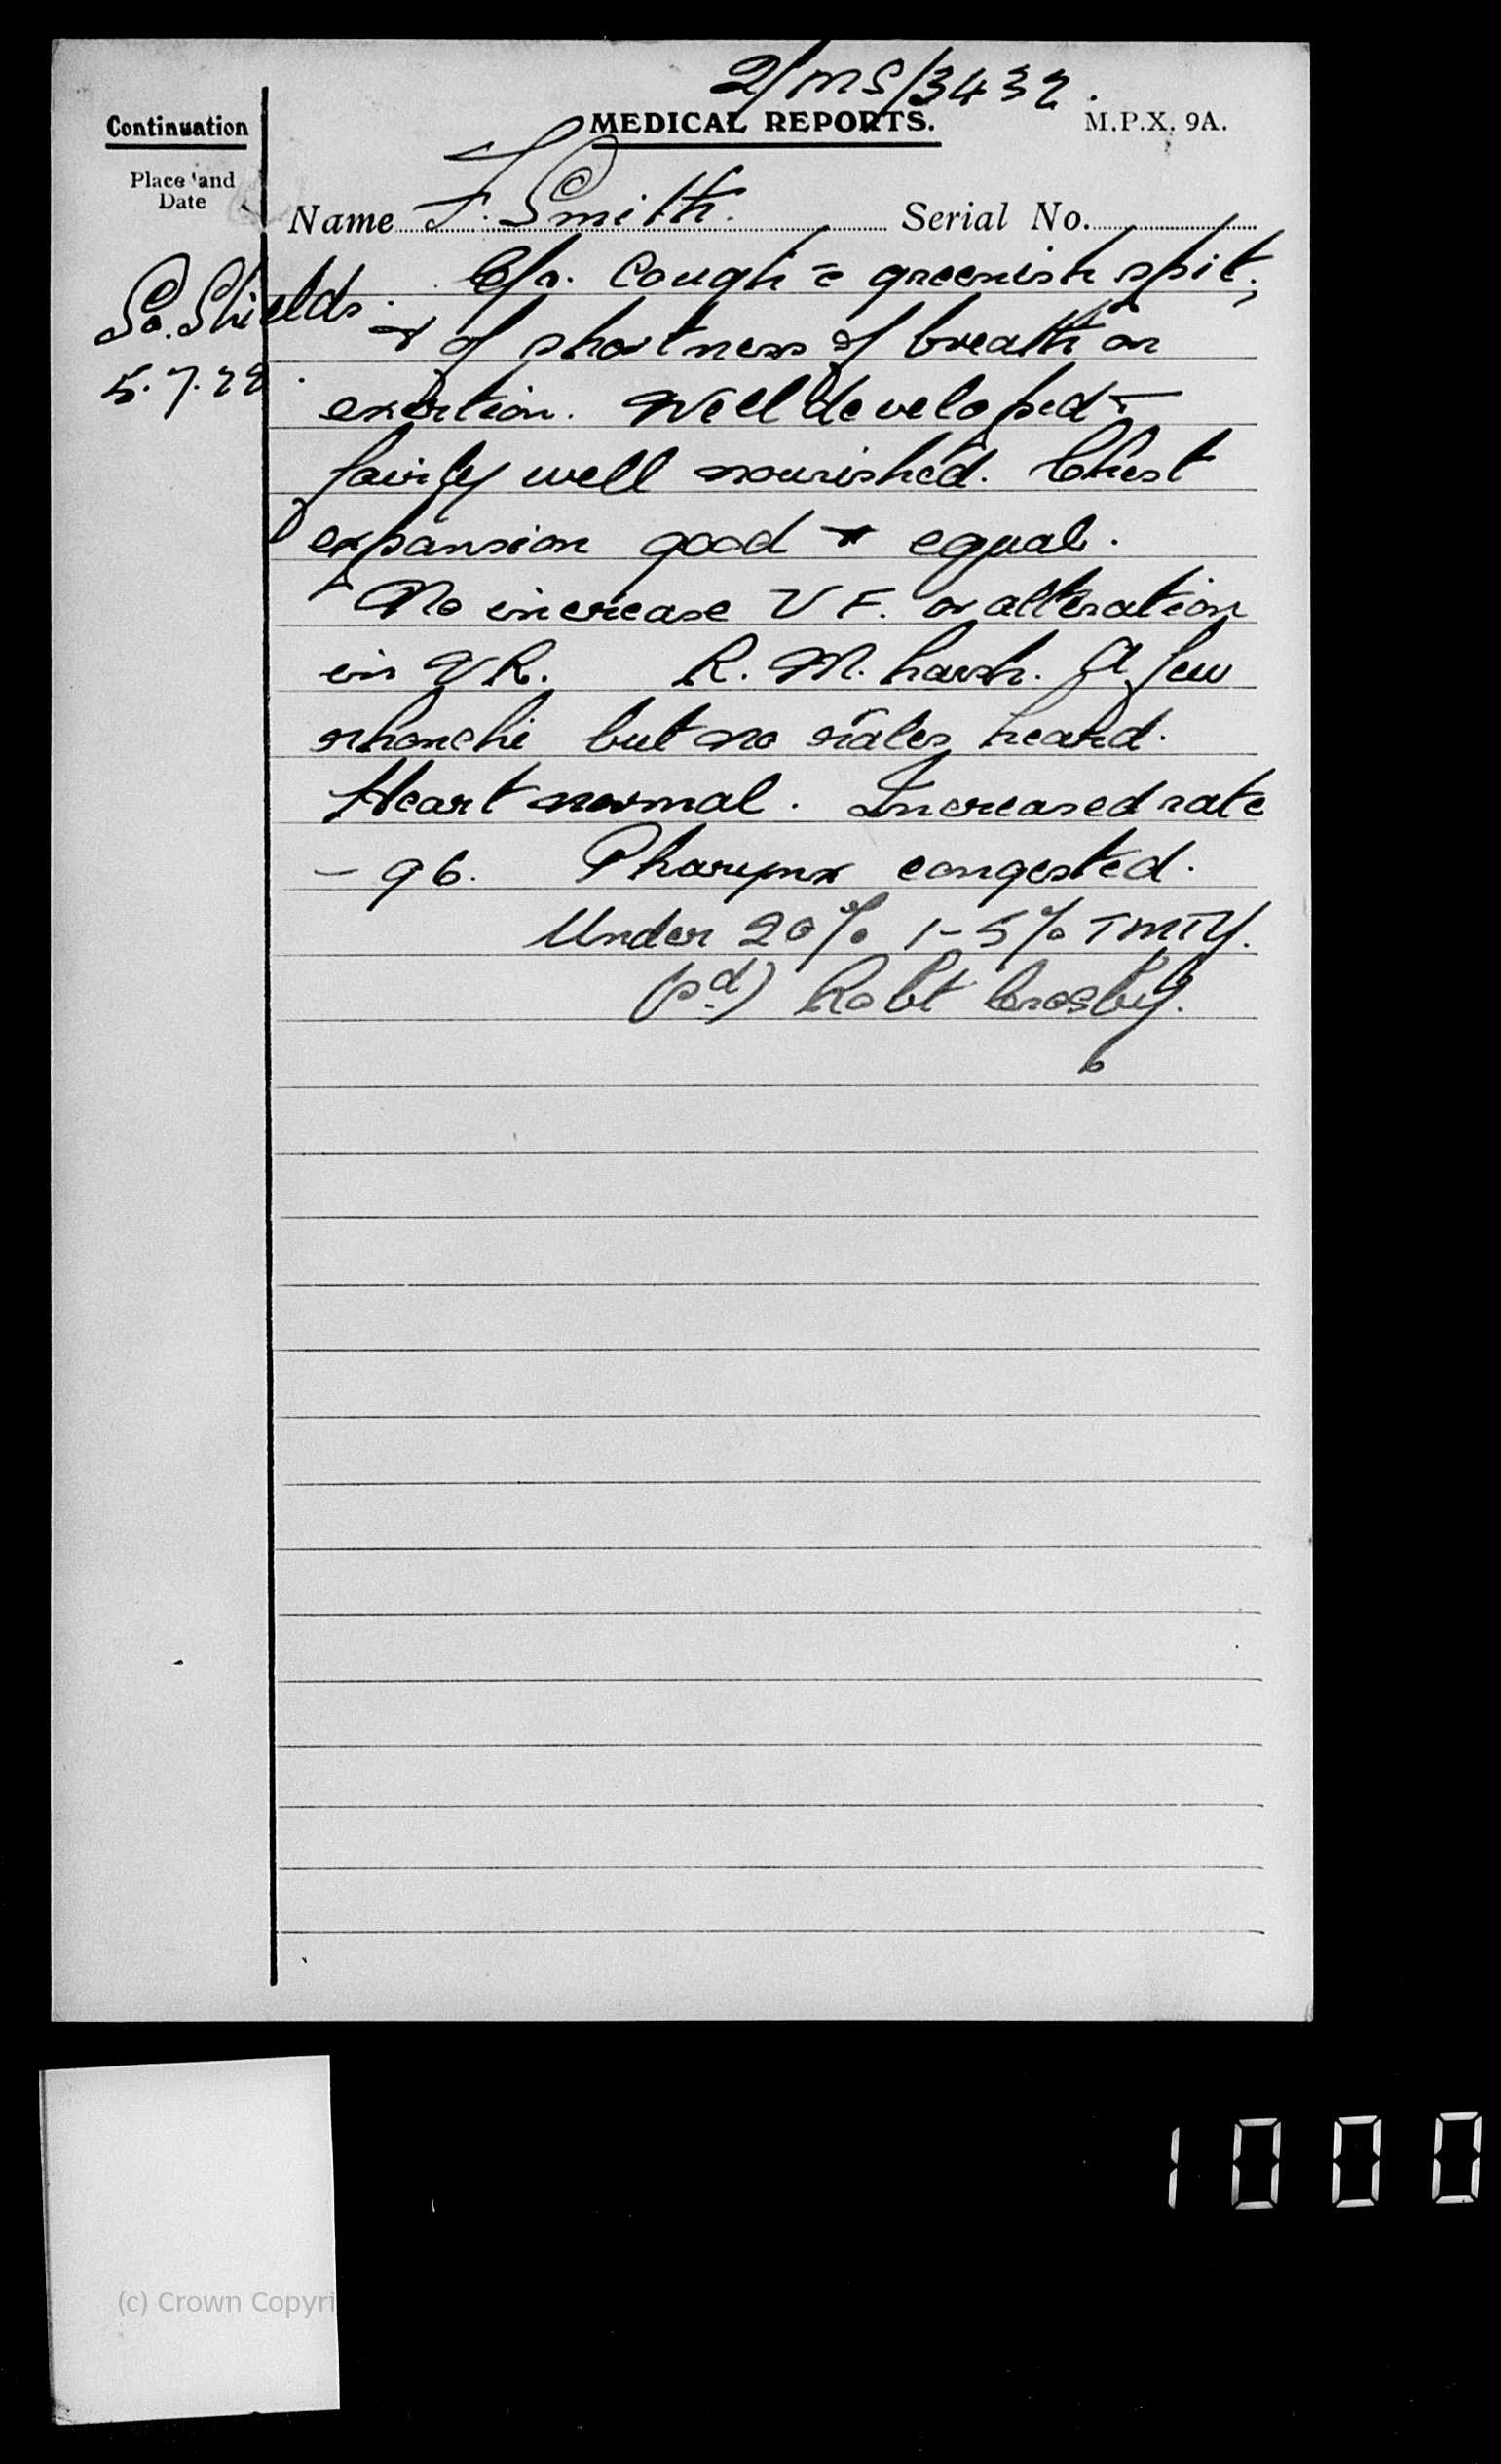 2/MS/3432.
Continuation
MEDICAL REPORTS.
M.P.X. 9A.
Place and
Date
Name F. Smith. Serial No.
So. Shields.
5.7.22.
C/o. Cough c̄ greenish spit;
& of shortness of breath on
exertion. Well developed &
fairly well nourished. Chest
expansion good & equal.
No increase V F. or alteration
in V R. R. M. harsh. A few
rhonchi but no râles heard.
Heart normal. Increased rate
– 96. Pharynx congested.
Under 20% 1–5% TMTY.
(sd) Robt Crosby.
1000
(c) Crown Copyri